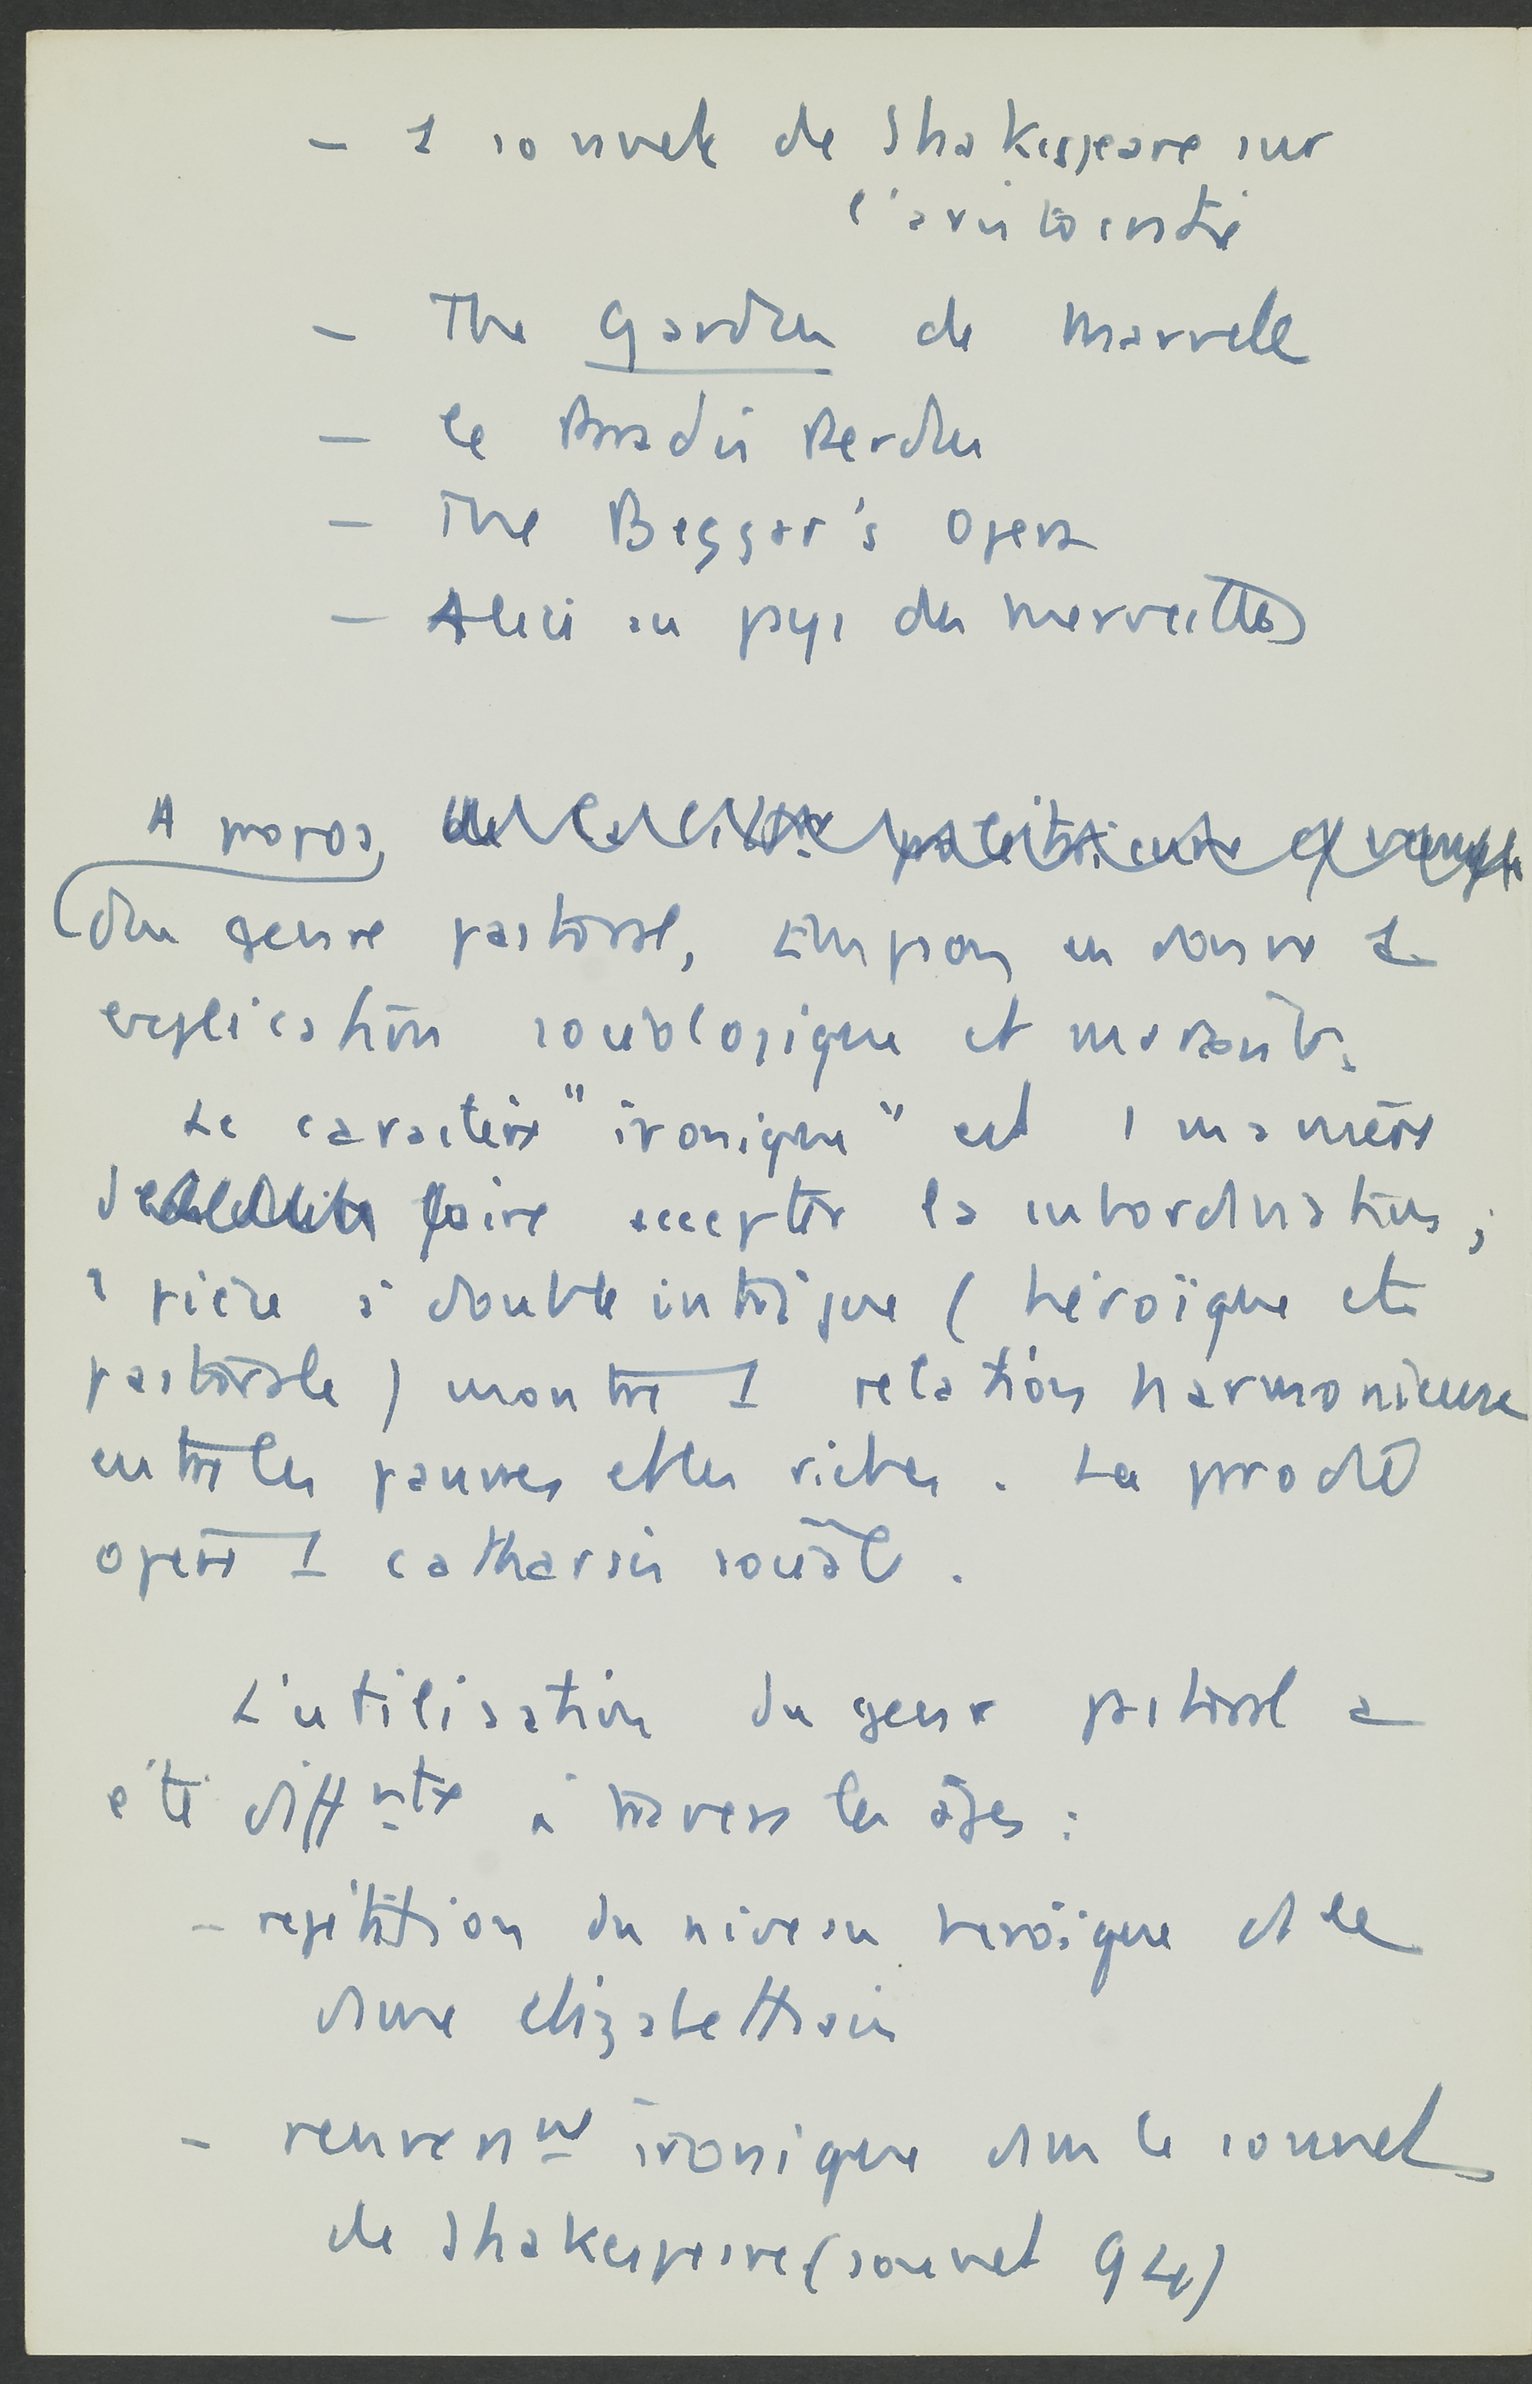 - 1 sonnet de Shakespeare sur
l'aristocratie
- The Garden de Marvell
- le Paradis Perdu
- The Beggar's Opera
- Alice au pays des merveilles
A propos
du genre pastoral, Empson en donne 1
explication sociologique et marxiste.
Le caractère "ironique" est 1 manière
de faire accepter la subordination ;
1 pièce à double intrigue ( héroïque et
pastorale ) montre 1 relation harmonieuse
entre les pauvres et les riches . La parodie
opère 1 catharsis sociale .
L'utilisation du genre pastoral a
été diffnte à travers les âges :
- répétition du niveau héroïque ds le
drame élizabethain
- renversnt ironique dans le sonnet
de Shakespeare (sonnet 94)